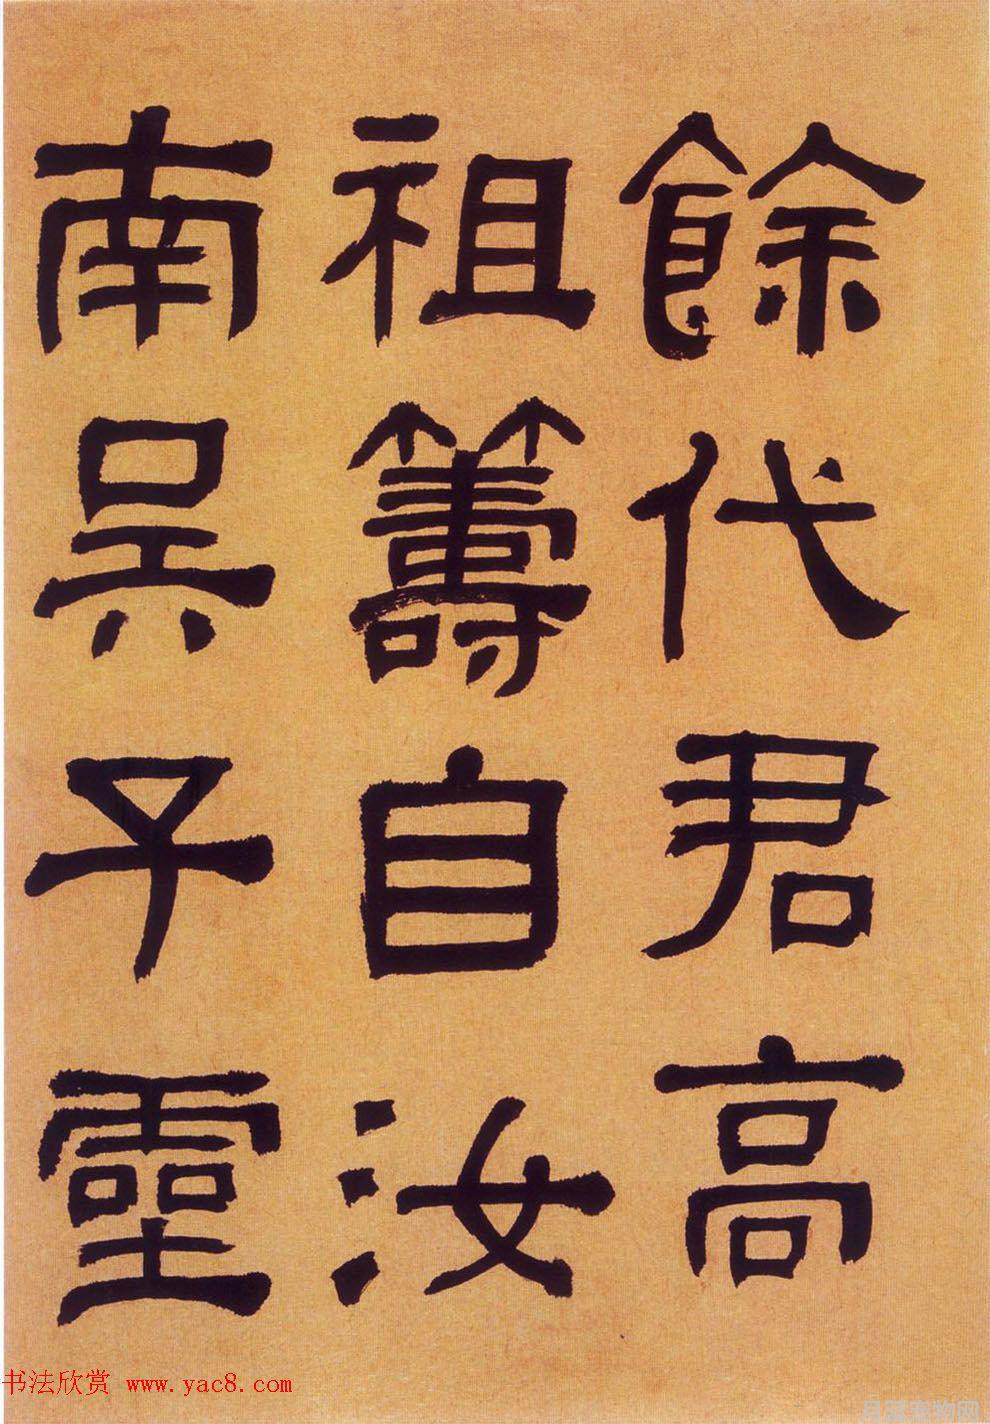 餘代君高
祖籌自汝
南吴子靈
书法欣赏 www.yac8.com